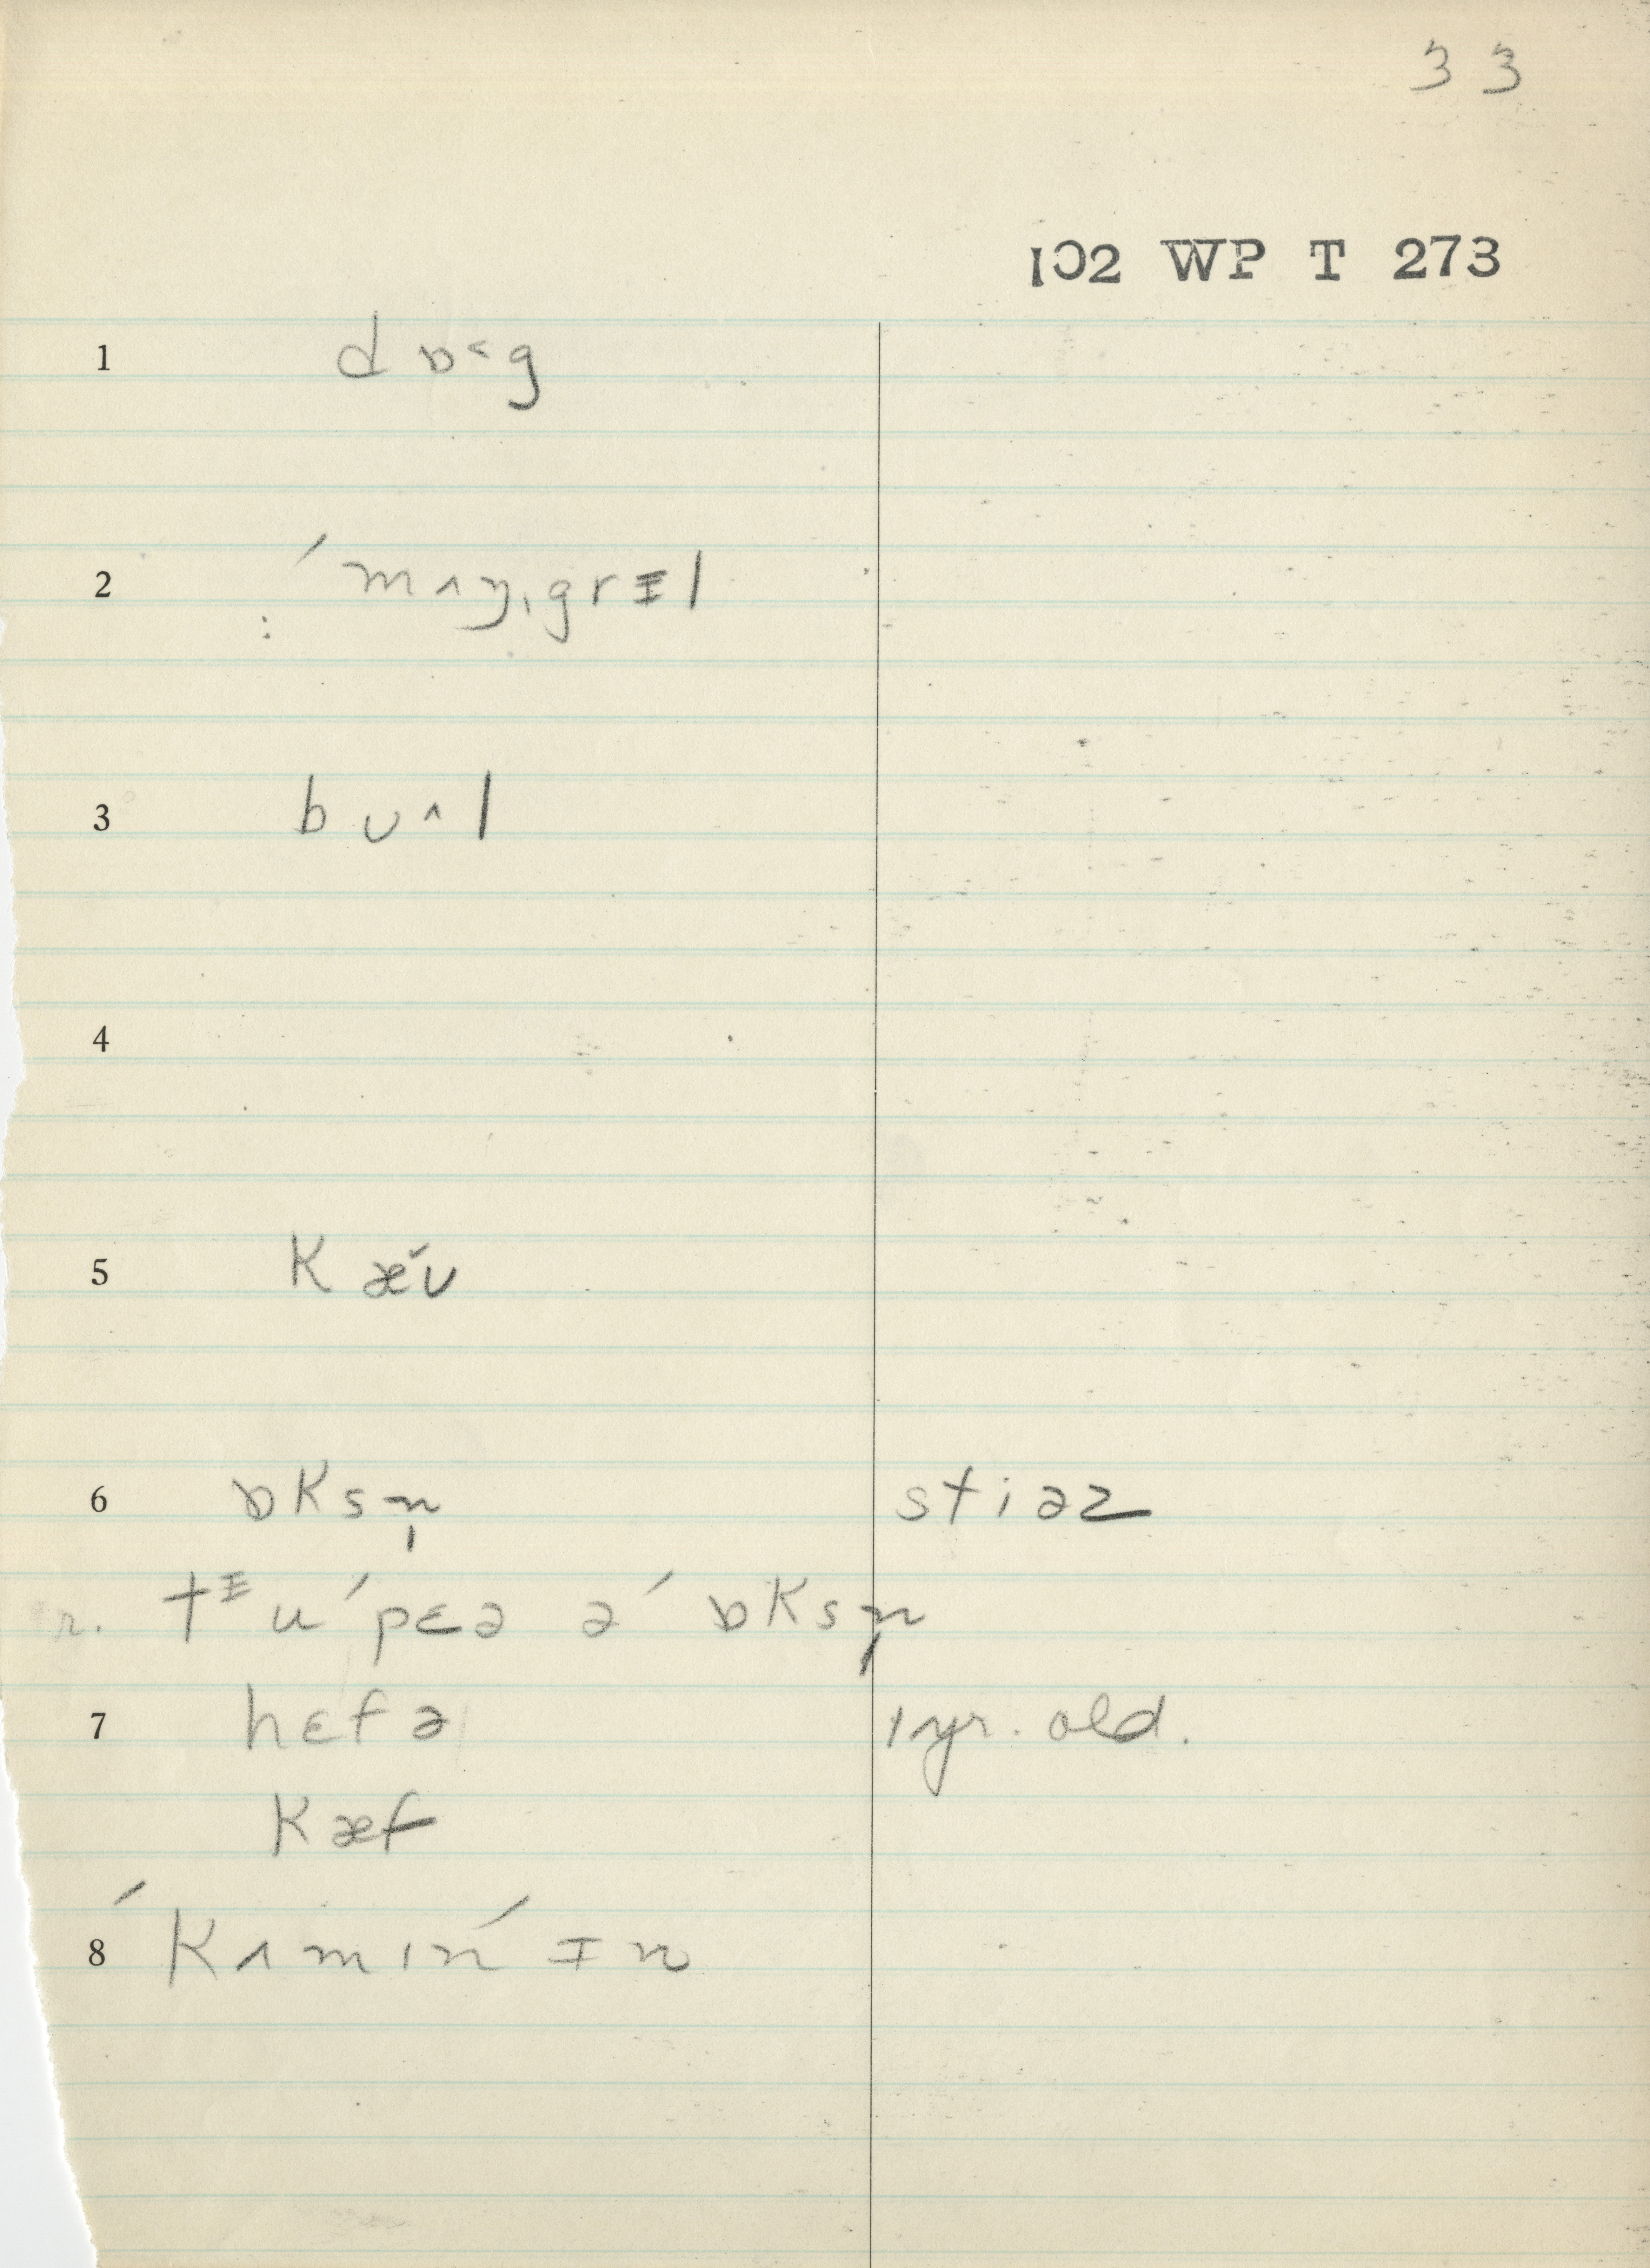 33
102 WP T 273
1 dɒ˂g
2 ˈmʌŋˌgrᵻl
3 bʊ^l
4
5 kæ̆ʊ
6 ɒksn̩ stiəz
r. tᵻu ˈpɛə ə ˈɒksn̩
7 hɛfə 1 yr. old.
kæf
8 ˈkʌmɪn ˈɪn